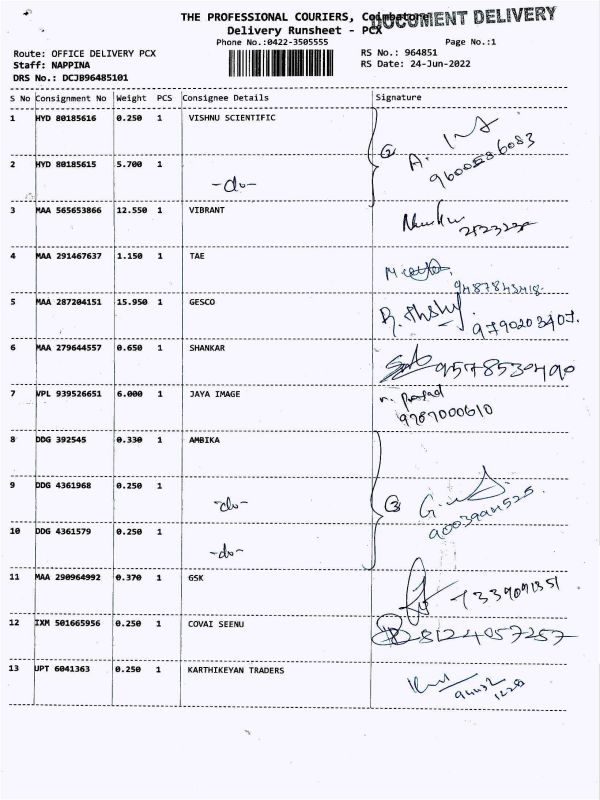 THE PROFESSIONAL COURIERS, Coimbatore
DOCUMENT DELIVERY
Delivery Runsheet - PCX
Phone No.:0422-3505555
Page No.:1
Route: OFFICE DELIVERY PCX
RS No.: 964851
Staff: NAPPINA
RS Date: 24-Jun-2022
DRS No.: DCJB96485101
S No Consignment No Weight PCS Consignee Details Signature
1 HYD 80185616 0.250 1 VISHNU SCIENTIFIC
2 HYD 80185615 5.700 1
-do-
9600586083
3 MAA 565653866 12.550 1 VIBRANT
4 MAA 291467637 1.150 1 TAE
9487843418
5 MAA 287204151 15.950 1 GESCO
9790203407
6 MAA 279644557 0.650 1 SHANKAR
9578530490
7 VPL 939526651 6.000 1 JAYA IMAGE
n. Prasad
9787000610
8 DDG 392545 0.330 1 AMBIKA
9 DDG 4361968 0.250 1
-do-
③
10 DDG 4361579 0.250 1
-do-
11 MAA 290964992 0.370 1 GSK
7339091351
12 IXM 501665956 0.250 1 COVAI SEENU
8124057257
13 UPT 6041363 0.250 1 KARTHIKEYAN TRADERS